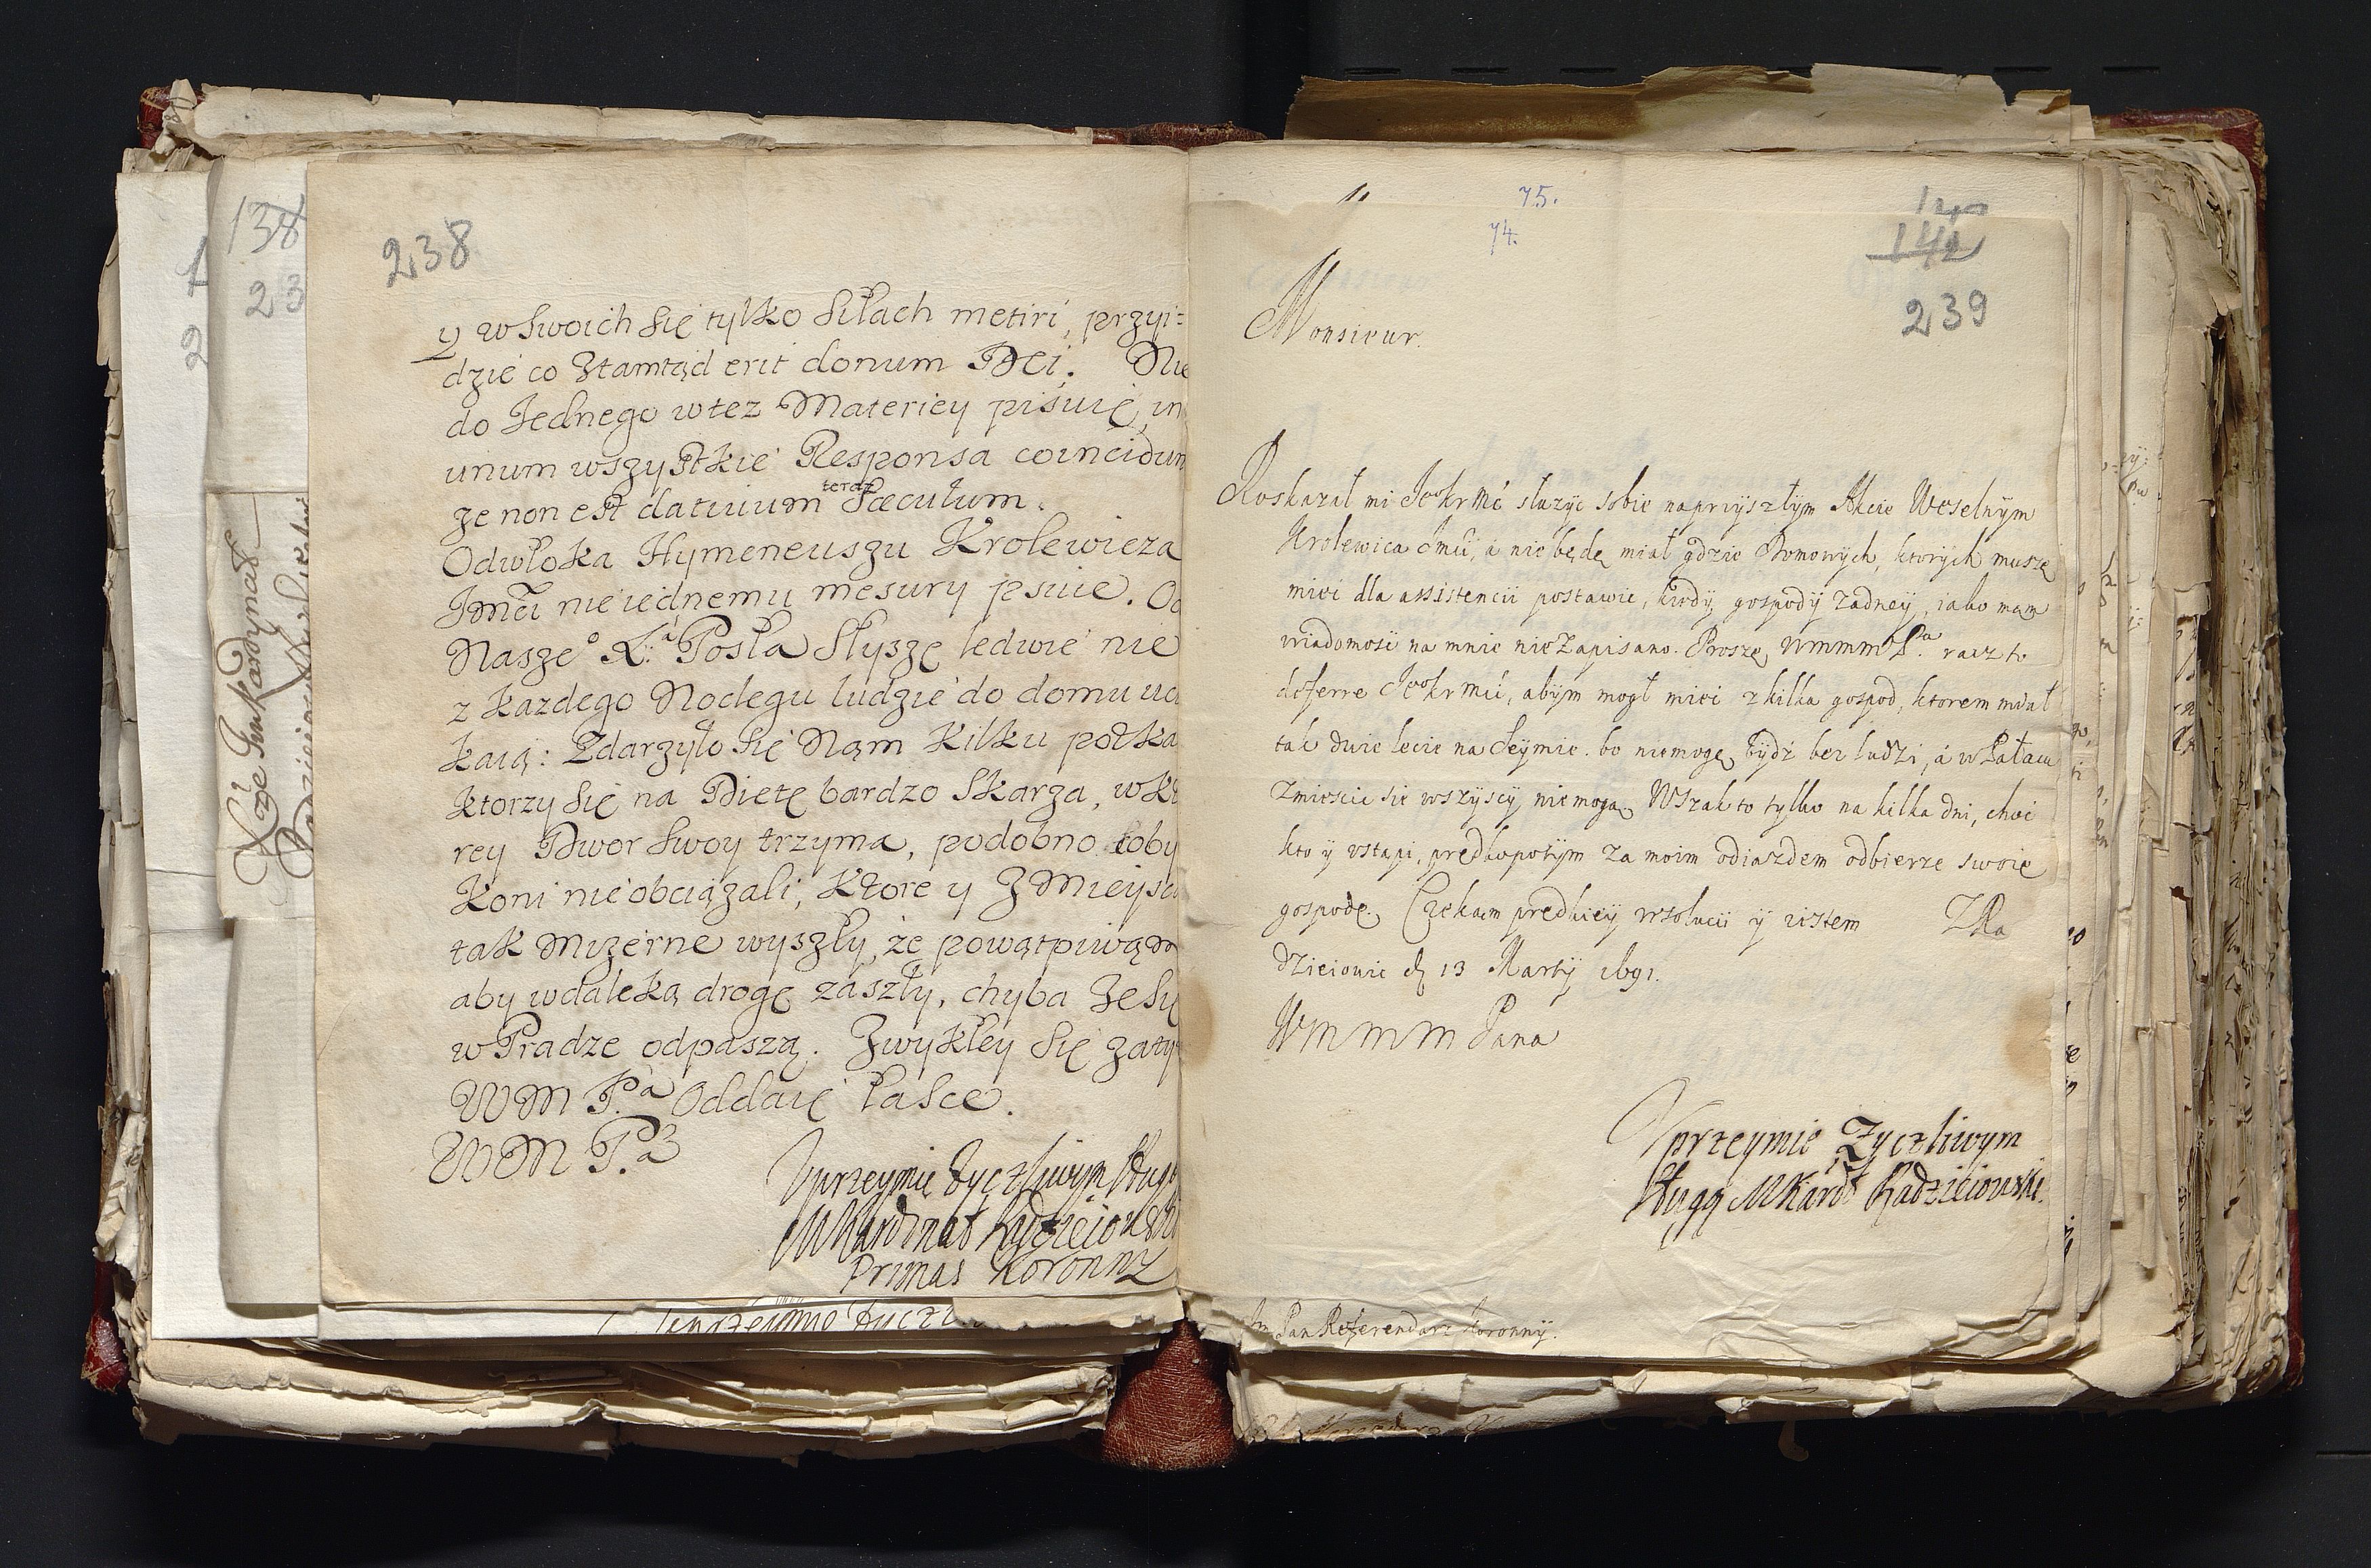 138
23
Xże Imć Kardynał
238
y w swoich się tylko siłach metiri, przyi=
dzie co ztamtąd erit donum Dei. Nie
do Jednego w tez Materiey piszuię, in
unum wszystkie Responsa coincidun
ze non est datiuum teraz Sæculum.
Odwłoka Hymeneuszu Krolewicza
Jmći nie iednemu mesury psuie. Od
Nasze° K. Posła Słyszę ledwie nie
z kazdego Noclegu ludzie do domu uci
kaią: Zdarzyło się Nąm kilku potka
ktorzy się na Dietę bardzo Skarza, w kt
rey Dwor swoy trzyma, podobno zoby
Koni nie obciązali; Ktore y z Mieysc
tak Mizerne wyszły, że powątpiwąm
aby w daleką drogę zászły, chyba Ze Się
w Pradze odpaszą. Zwykłey się zatym
WM P.ª Oddaię łasce.
WM P.ª
Uprzeymie życzliwym sługą
M Kardinał Radzieiowski
Primas Koronny
Uprzeymie życzl
75.
74.
142
239
Monsieur.
Roskazał mi Jeo kr Mć słuzyc sobie na przyszłym Akcie Weselnym
Krolewica Jmći, á nie będę miał gdzie Domowych, ktorych muszę
mieć dla assistencii postawic, kiedy gospody zadney, iako mam
wiadomość na mnie nie zapisano. Proszę WmmmPª. racz to
deferre Jeo kr mći, abym mogł mieć z kilka gospod, ktorem miał
tak dwie lecie na Seymie. bo niemogę bydź bez ludzi, á w Pałacu
zmiescic sie wszyscy niemogą. Wszak to tylko na kilka dni, choc
kto y ustąpi, prędko potym za moim odiazdem odbierze swoię
gospodę. Czekam prędkiey rezolucii y iestem Z Ra
dzieiowic d 13 Martij 1691.
W m m m Pana
Uprzeymie Zyczliwym
sługą M Kard Radzieiowski.
Jm Pan Referendarz Koronny.